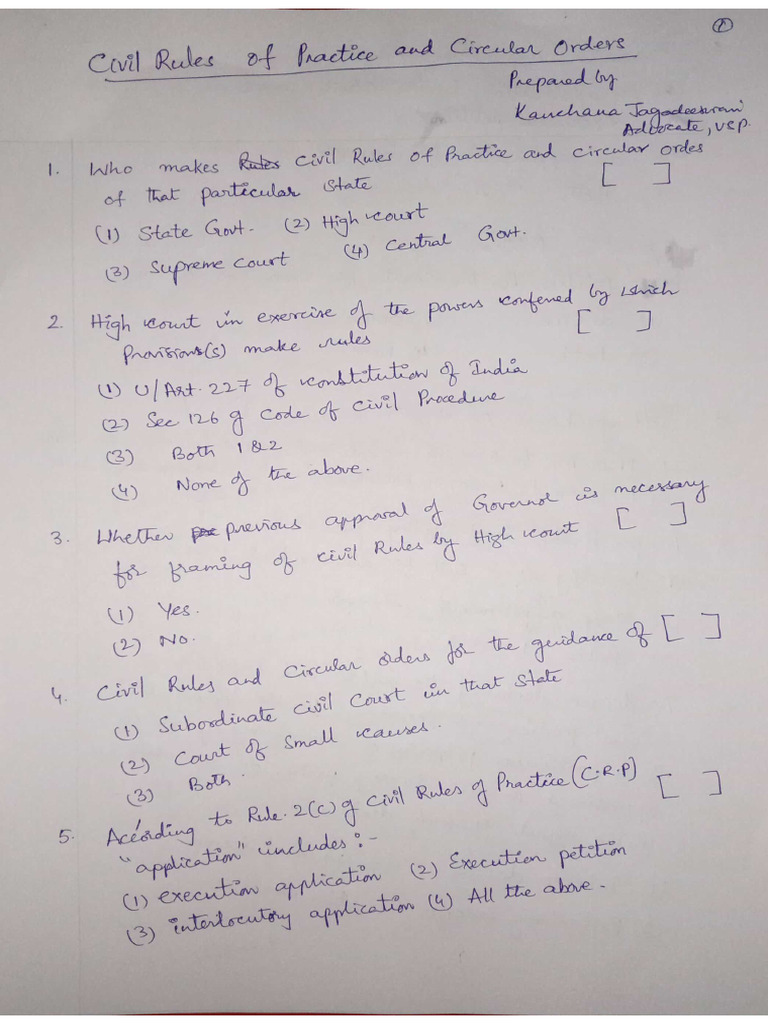 ①
Civil Rules of Practice and Circular Orders
Prepared by
Kanchana Jagadeeswari
Advocate, VSP.
1. Who makes Rules Civil Rules of Practice and circular ordes
of that particular State [ ]
(1) State Govt. (2) High court
(3) Supreme court (4) Central Govt.
2. High court in exercise of the powers conferred by which
Provisions(s) make rules [ ]
(1) U/Art. 227 of constitution of India
(2) Sec 126 of Code of Civil Procedure
(3) Both 1 & 2
(4) None of the above.
3. Whether pre previous approval of Governor is necessary
for framing of civil Rules by High court [ ]
(1) Yes.
(2) No.
4. Civil Rules and Circular orders for the guidance of [ ]
(1) Subordinate civil Court in that State
(2) Court of Small causes.
(3) Both.
5. According to Rule. 2(C) of Civil Rules of Practice (C.R.P) [ ]
"application" includes :-
(1) execution application (2) Execution petition
(3) interlocutory application (4) All the above.